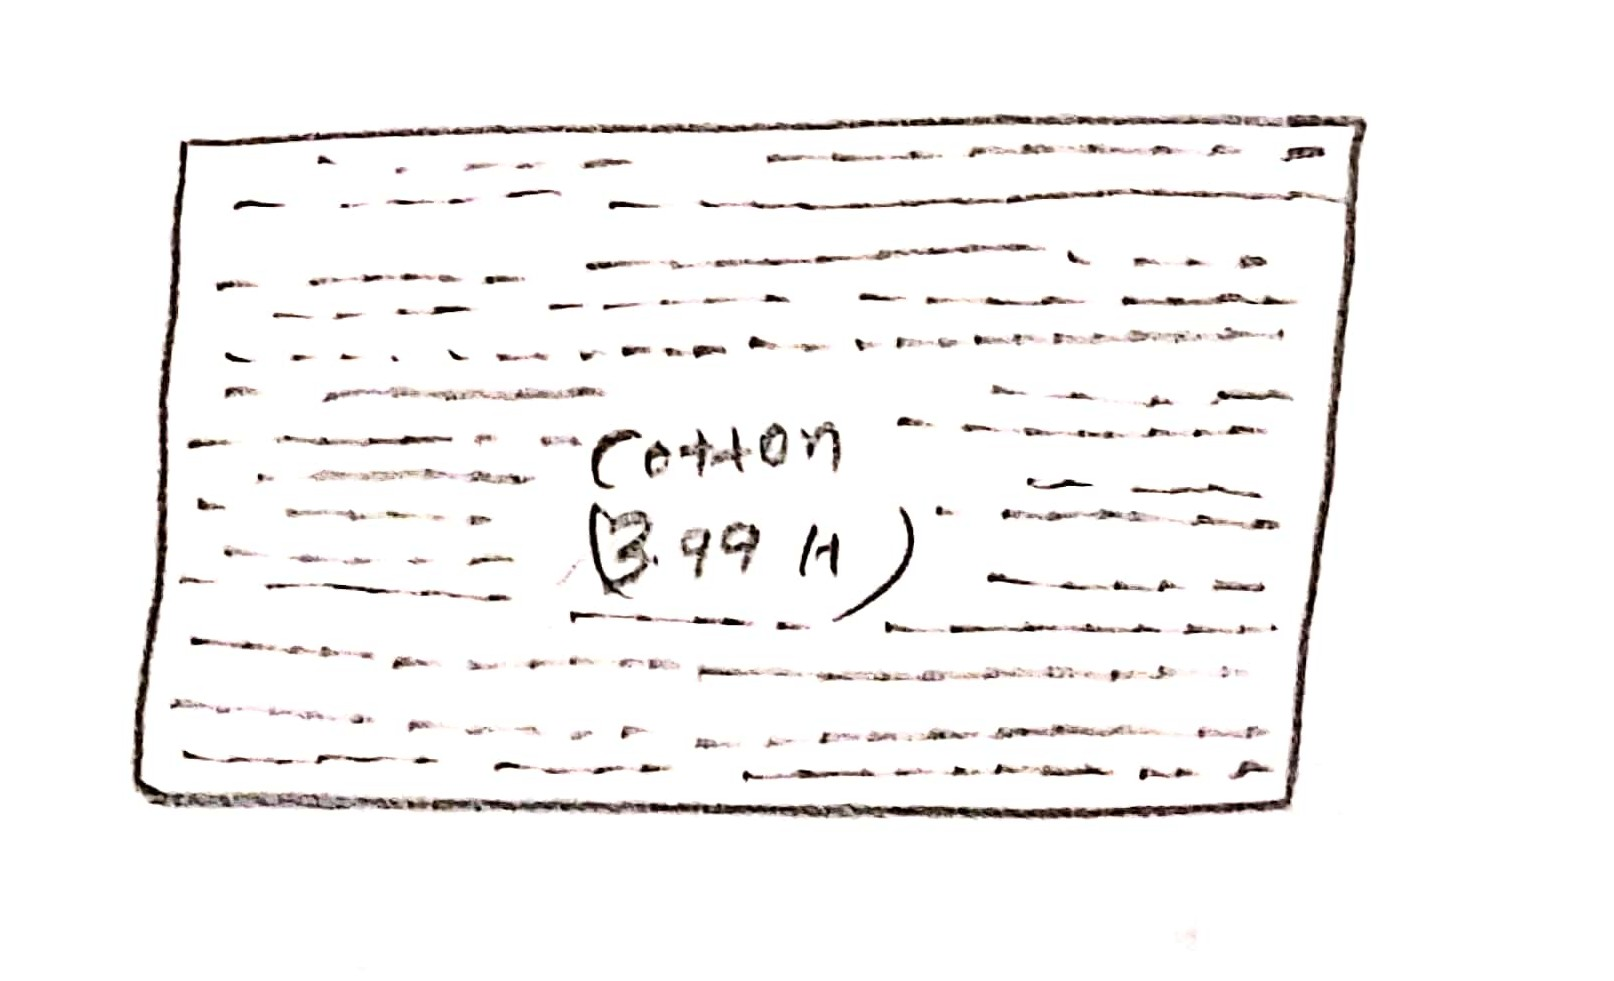 Cotton
(3.99 H)